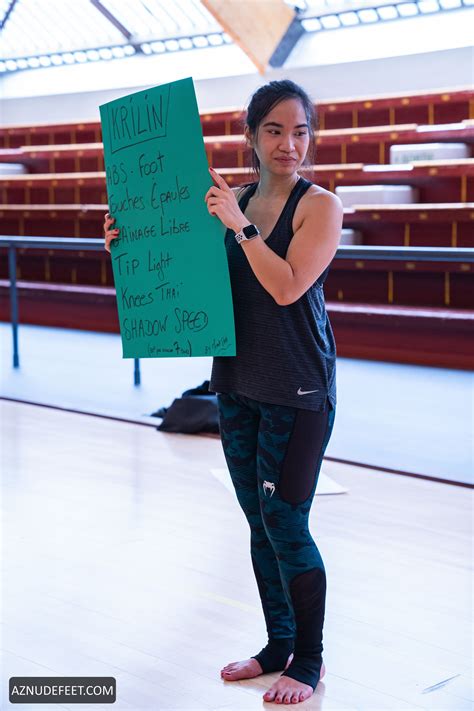 KRILIN
ABS - FOOT
TOUCHES ÉPAULES
DRAINAGE LIBRE
TIP LIGHT
KNEES THAÏ
SHADOW SPEED
AZNUDEFEET.COM